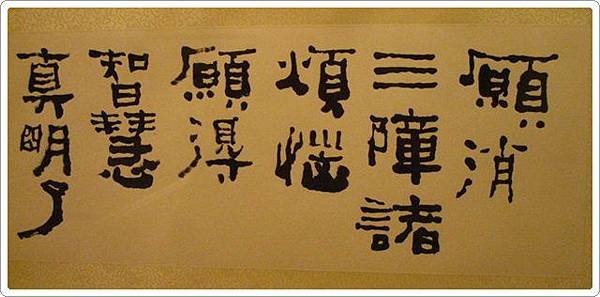 願消
三障諸
煩惱
願得
智慧
真明了